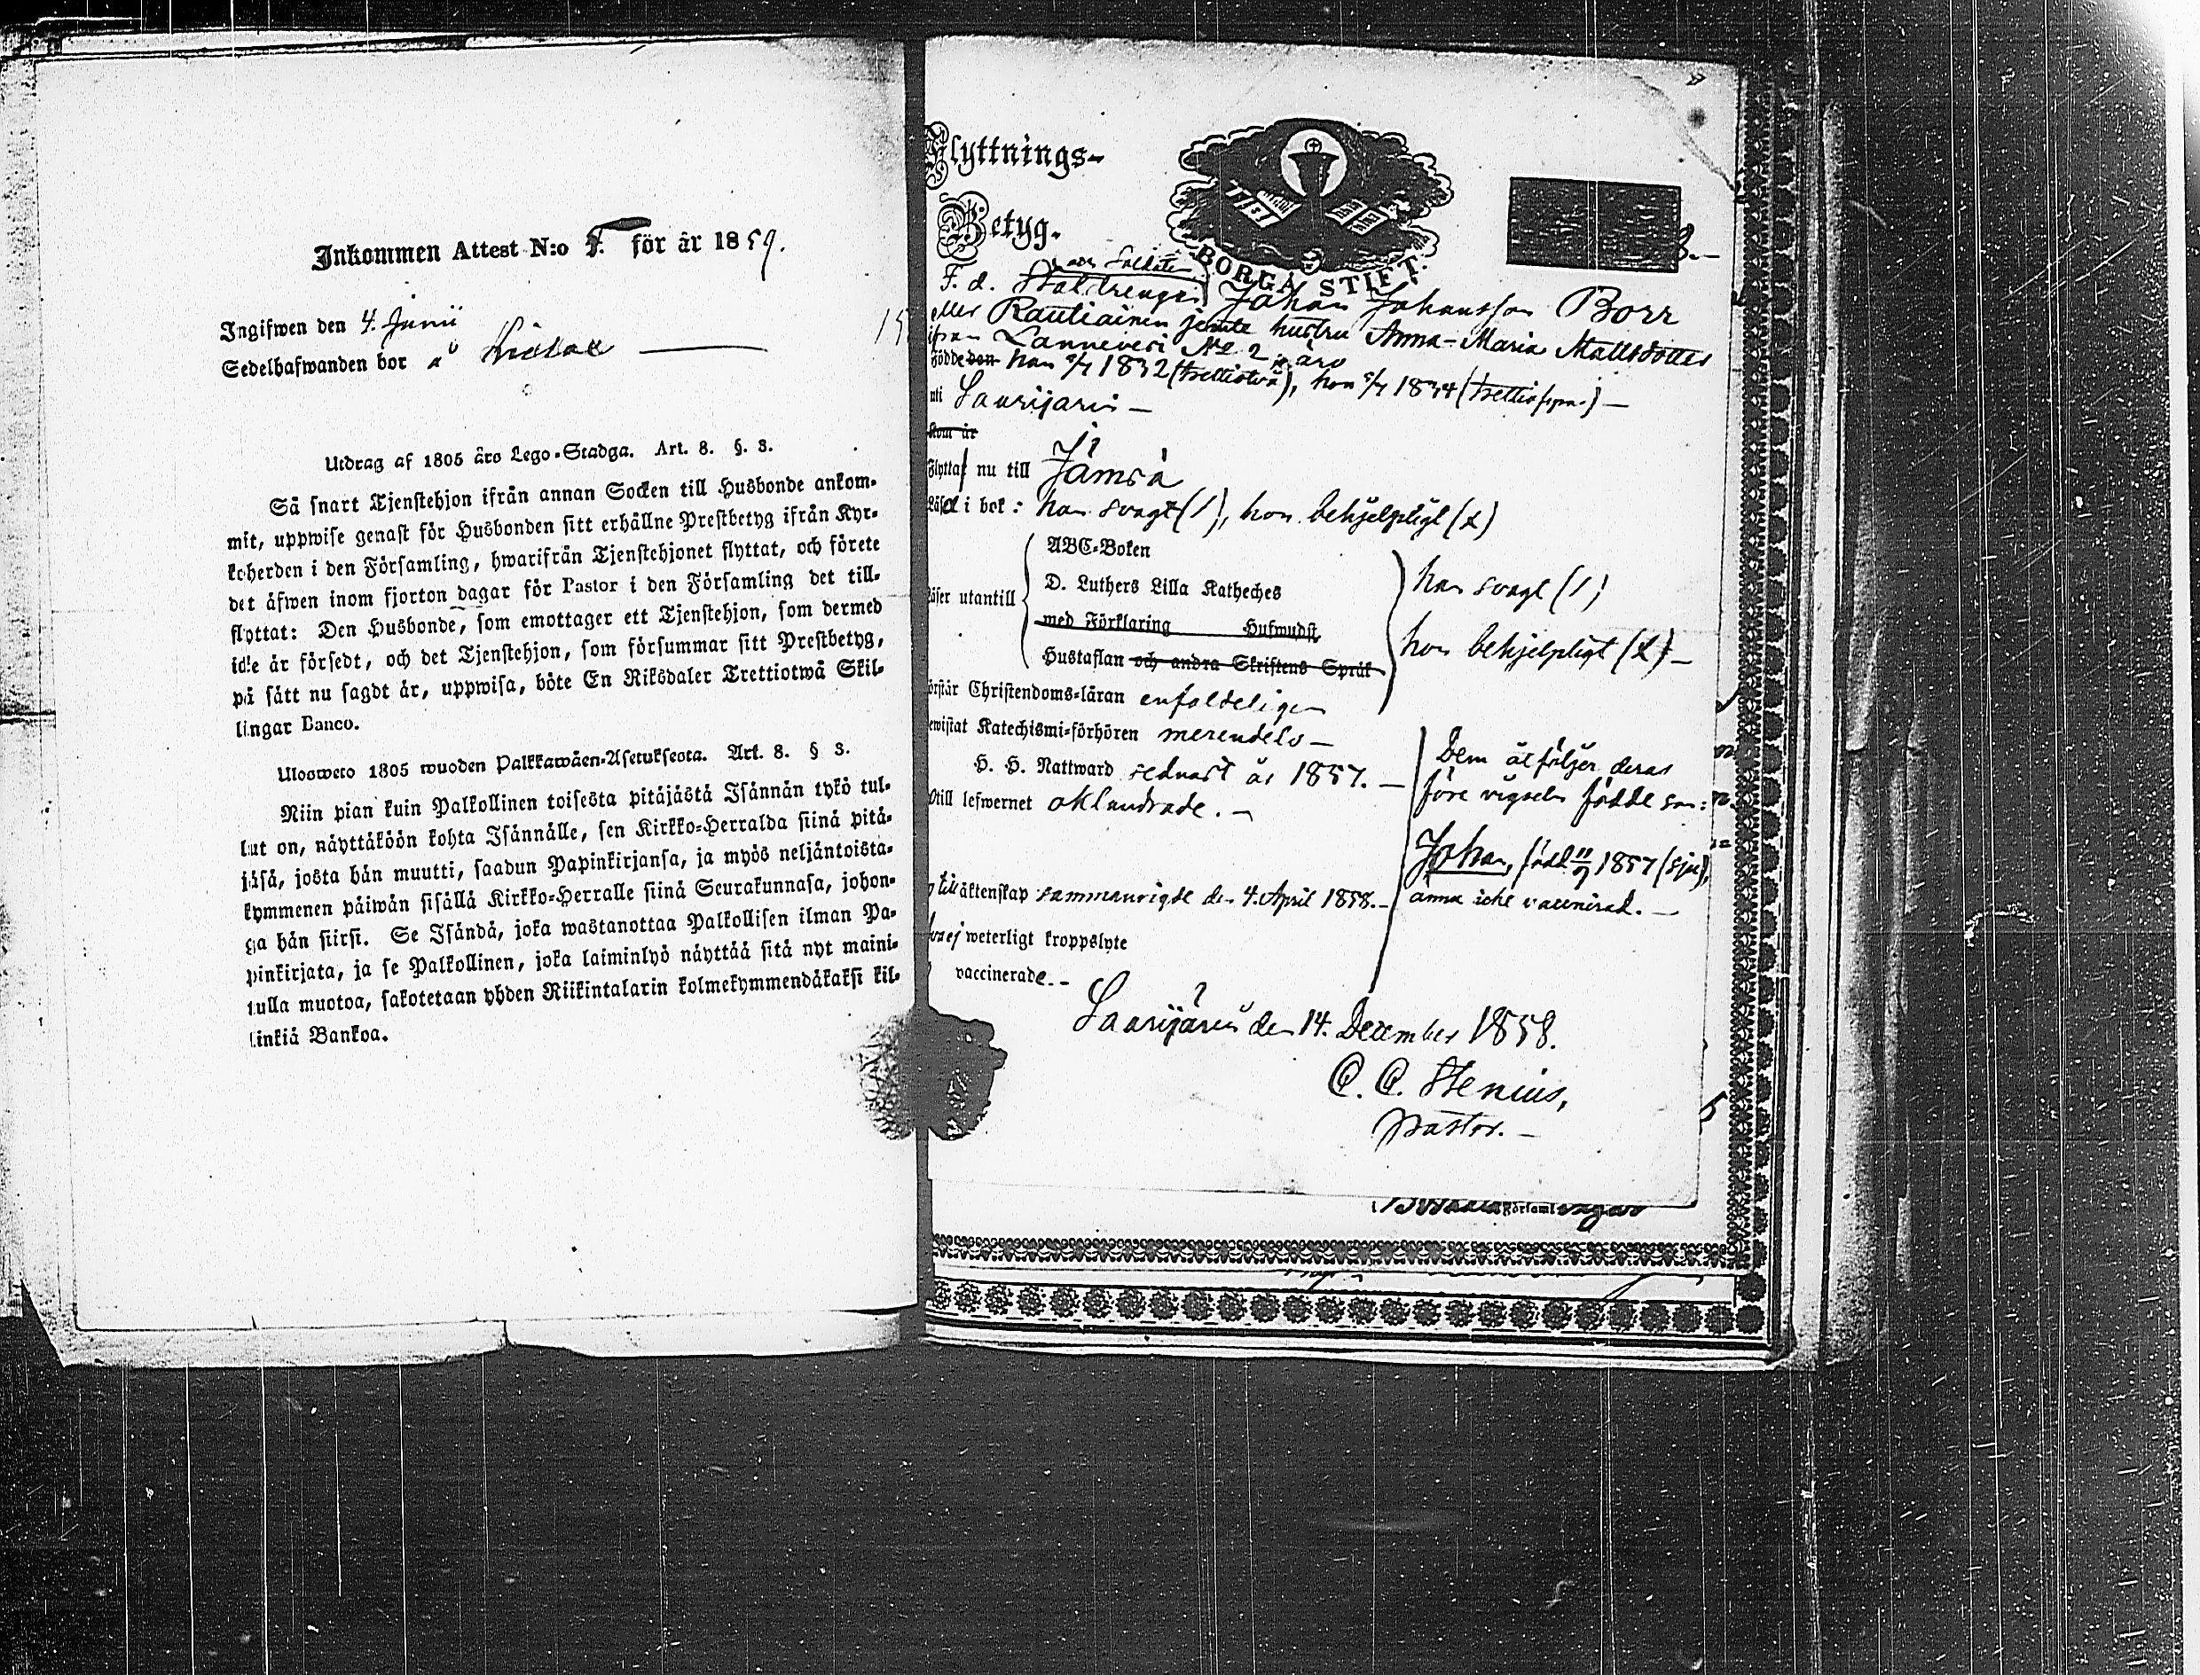 Inkommen Attest N:o för år 1859.
Ingifwen den 4. Junii
Sedelhafwanden bor å
Utdrag af 1805 åro Lego-Stadga. Art. 8. §. 3.
Så snart Tjenstehjon ifrån annan Socken till Husbonde ankom-
mit, uppwise genast för Husbonden sitt erhållne Prestbetyg ifrån Kyr-
koherden i den Församling, hwarifrån Tjenstehjonet flyttat, och förete
det äfwen inom fjorton dagar för Pastor i den Församling det till-
flyttat: Den Husbonde, som emottager ett Tjenstehjon, som dermed
icke är försedt, och det Tjenstehjon, som försummar sitt Prestbetyg,
på sätt nu sagdt är, uppwisa, böte En Riksdaler Trettiotwå Skil-
lingar Banco.
Ulosweto 1805 wuoden Palkkawäen-Asetuksesta. Art. 8. § 3.
Niin pian kuin Palkollinen toisesta pitäjästä Isännän tykö tul-
lut on, näyttäköön kohta Isännälle, sen Kirkko-Herralda siinä pitä-
jäsä, josta hän muutti, saadun Papinkirjansa, ja myös neljäntoista-
kymmenen päiwän sisällä Kirkko-Herralle siinä Seurakunnasa, johon-
ga hän siirsi. Se Isändä, joka wastanottaa Palkollisen ilman Pa-
pinkirjata, ja se Palkollinen, joka laiminlyö näyttää sitä nyt maini-
tulla muotoa, sakotetaan yhden Riikintalarin kolmekymmendäkaksi kil-
linkiä Bankoa.
Flyttnings-
Betyg.
BORGÅ STIFT.
F. d. Johan Johansson Borr
eller Rautiainen jemte hustru Anna-Maria Mattsdotter
ifrån Lanneveri No 2 äro
Födde den han 1832 (trettiotvå), hon 1834 (trettiofyra) –
uti Saarijärvi –
kom år
Flytta nu till Jämsä
Läsa i bok: han svagt (1), hon behjelpligt (x)
ABC-Boken
D. Luthers Lilla Katheches
han svagt (1)
Läser utantill
med Förklaring Hufwudst.
hon behjelpligt (x) –
Hustaflan och andra Skriftens Språk
örstår Christendoms-läran enfaldeligen
ewistat Katechismi-förhören merendels –
H. H. Nattward sednast år 1857. –
Otill lefwernet oklandrade. –
Dem åtföljer deras
före vigseln födde son:
Johan, född 1857 (sju),
ännu icke vaccinerad. –
till äktenskap sammanvigde den 4. April 1858. –
ej weterligt kroppslyte
vaccinerade. –
Saarijärvi den 14. December 1858.
C. C. Stenius,
Pastor. –